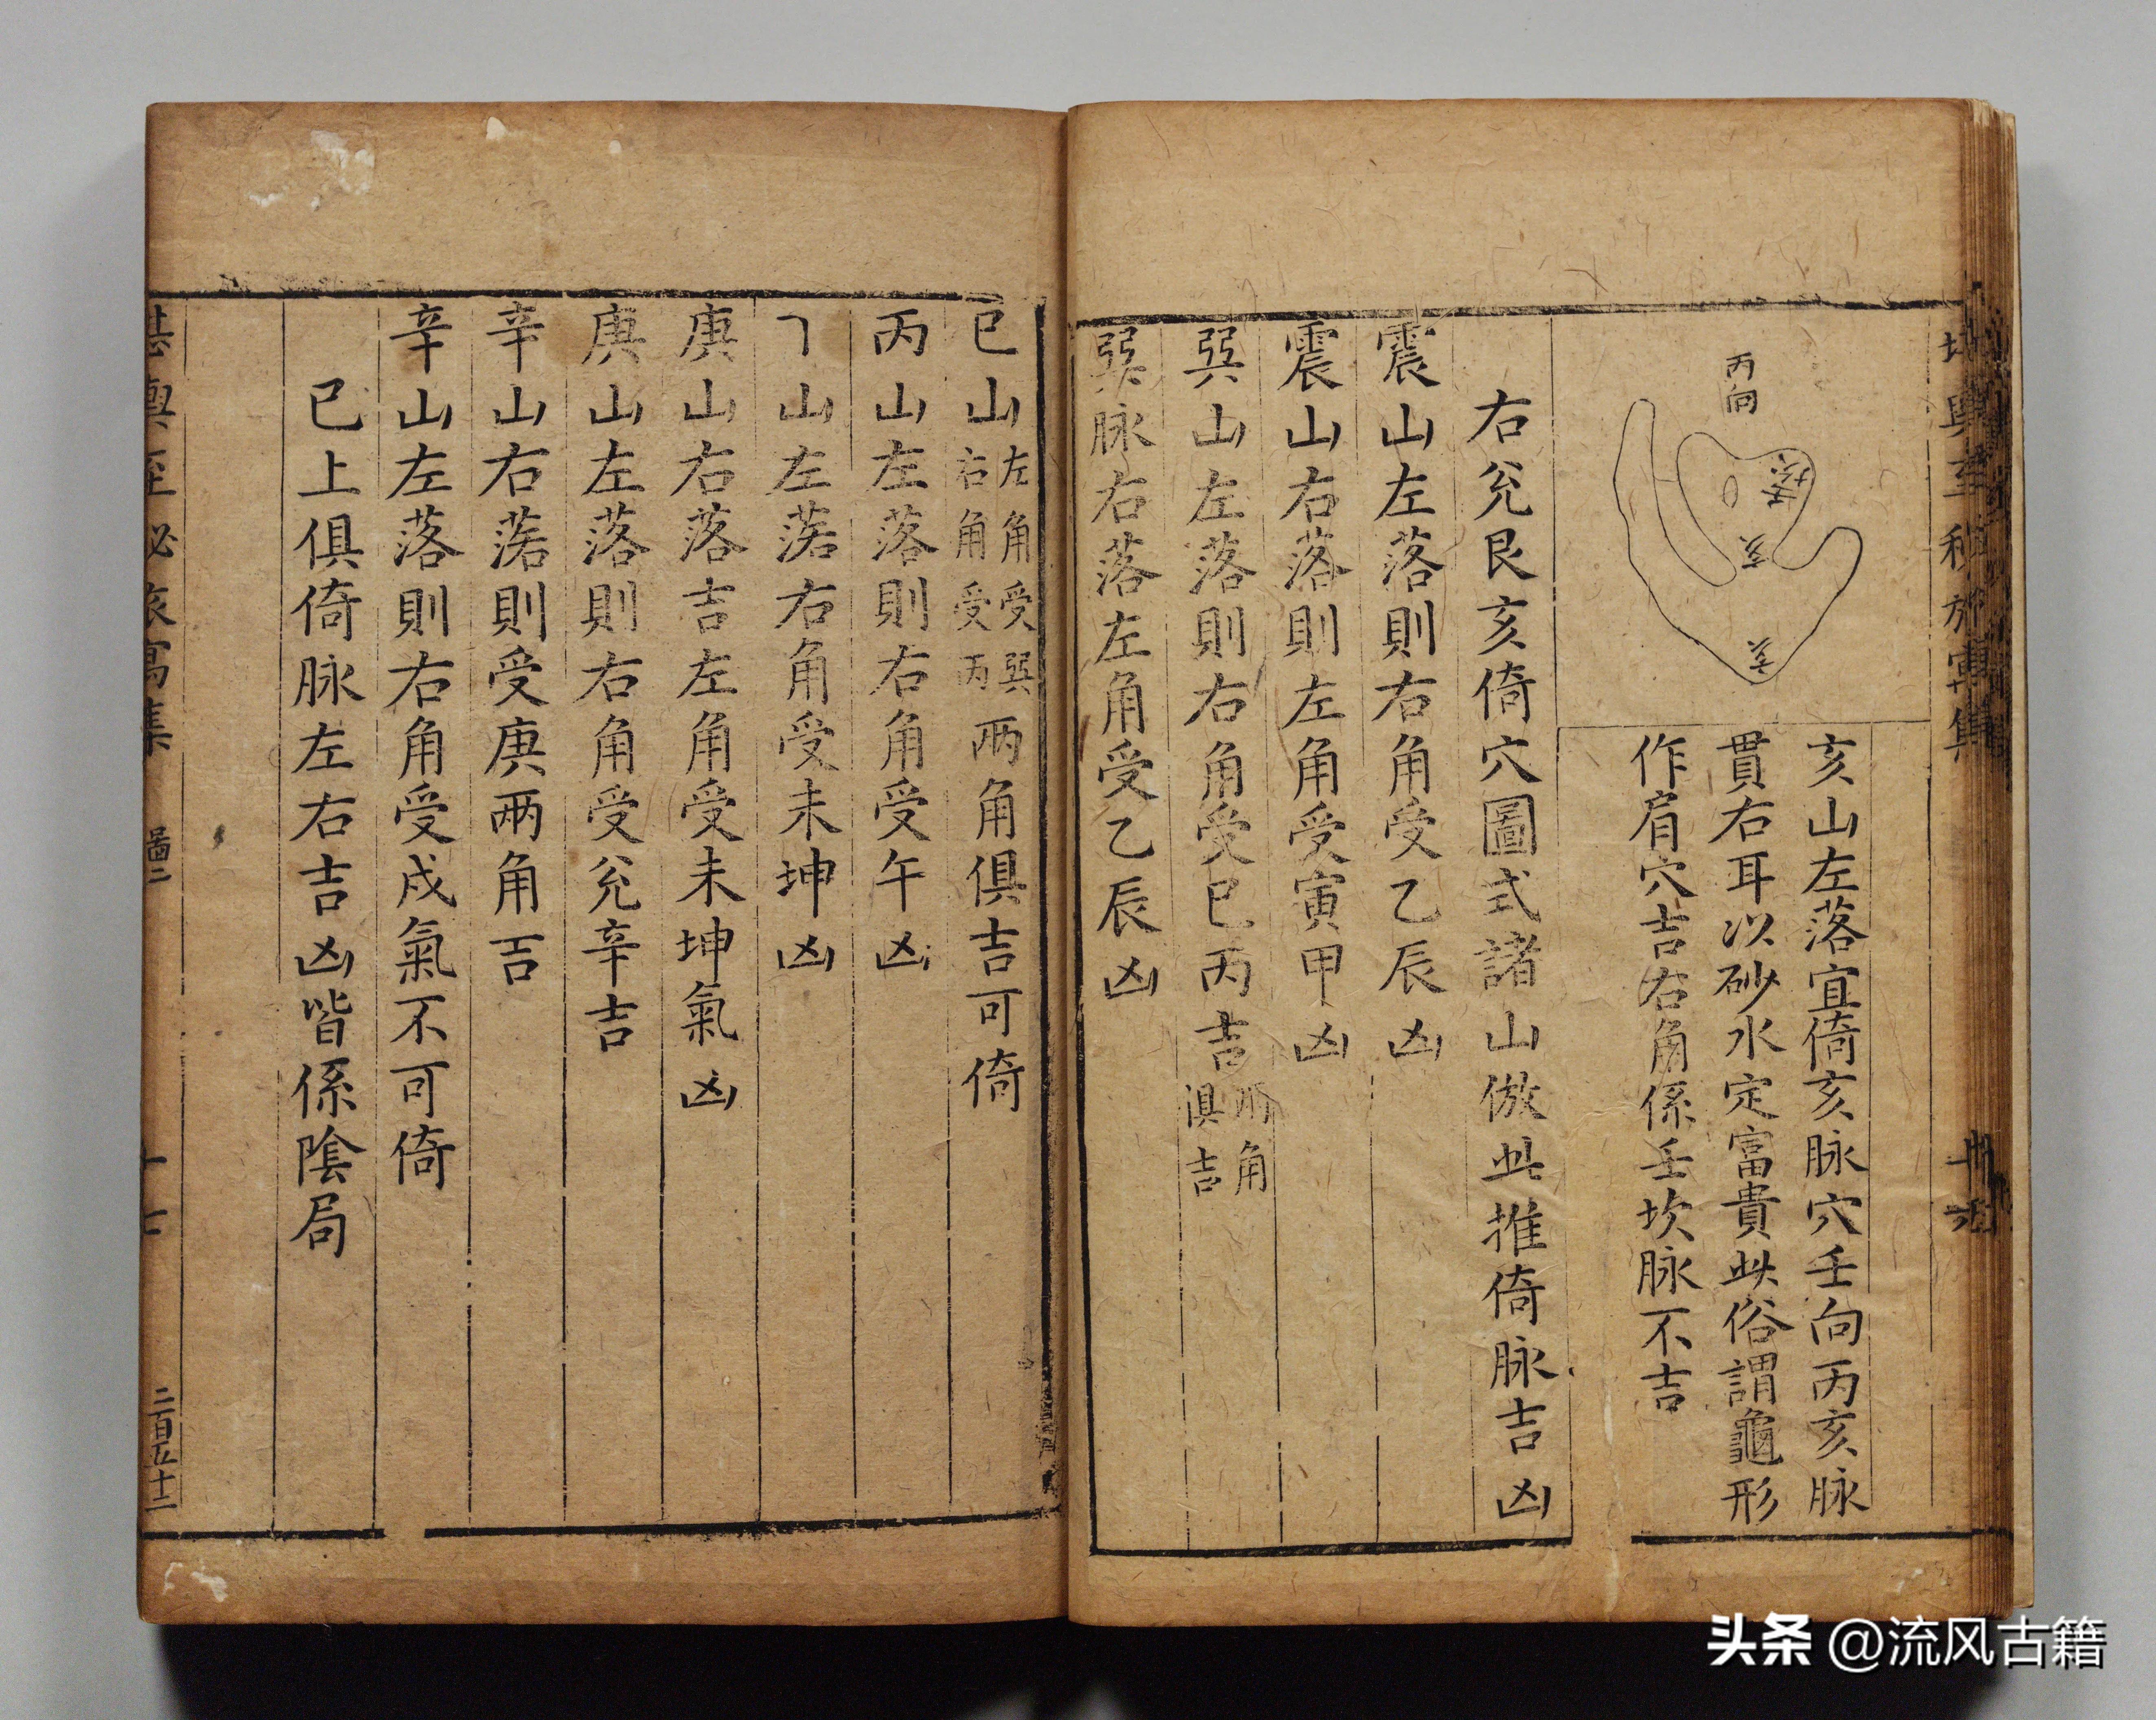 丙向
亥
亥
亥山左落宜倚亥脉穴壬向丙亥脉
貫右耳以砂水定富貴此俗謂龜形
作肩穴吉右角係壬坎脉不吉
右兊艮亥倚穴圖式諸山倣此推倚脉吉凶
震山左落則右角受乙辰凶
震山右落則左角受寅甲凶
巽山左落則右角受巳丙吉兩角俱吉
巽脉右落左角受乙辰凶
巳山左角受巽右角受丙兩角俱吉可倚
丙山左落則右角受午凶
山左落右角受未坤凶
庚山右落吉左角受未坤氣凶
庚山左落則右角受兊辛吉
辛山右落則受庚兩角吉
辛山左落則右角受戌氣不可倚
已上俱倚脉左右吉凶皆係陰局
圖二
二百五十二
头条 @流风古籍